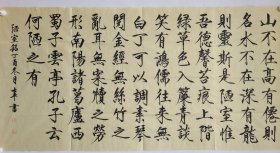 山不在高有僊則
名水不在深有龍
則靈斯是陋室惟
吾德馨苔痕上階
綠草色入簾青談
笑有鴻儒往來無
白丁可以調素琴
閱金經無絲竹之
亂耳無案牘之勞
形南陽諸葛廬西
蜀子雲亭孔子云
何陋之有
陋室銘 酉冬月 書